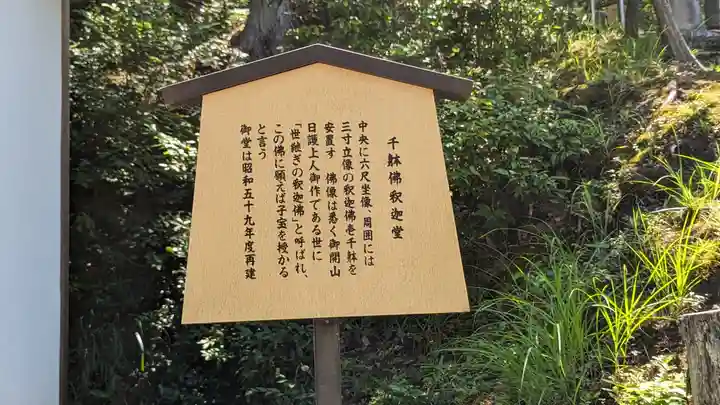 千躰佛釈迦堂
中央に六尺坐像、周囲には
三寸立像の釈迦佛壱千躰を
安置す 佛像は悉く御開山
日護上人御作である世に
「世継ぎの釈迦佛」と呼ばれ、
この佛に願えば子宝を授かる
と言う
御堂は昭和五十九年度再建